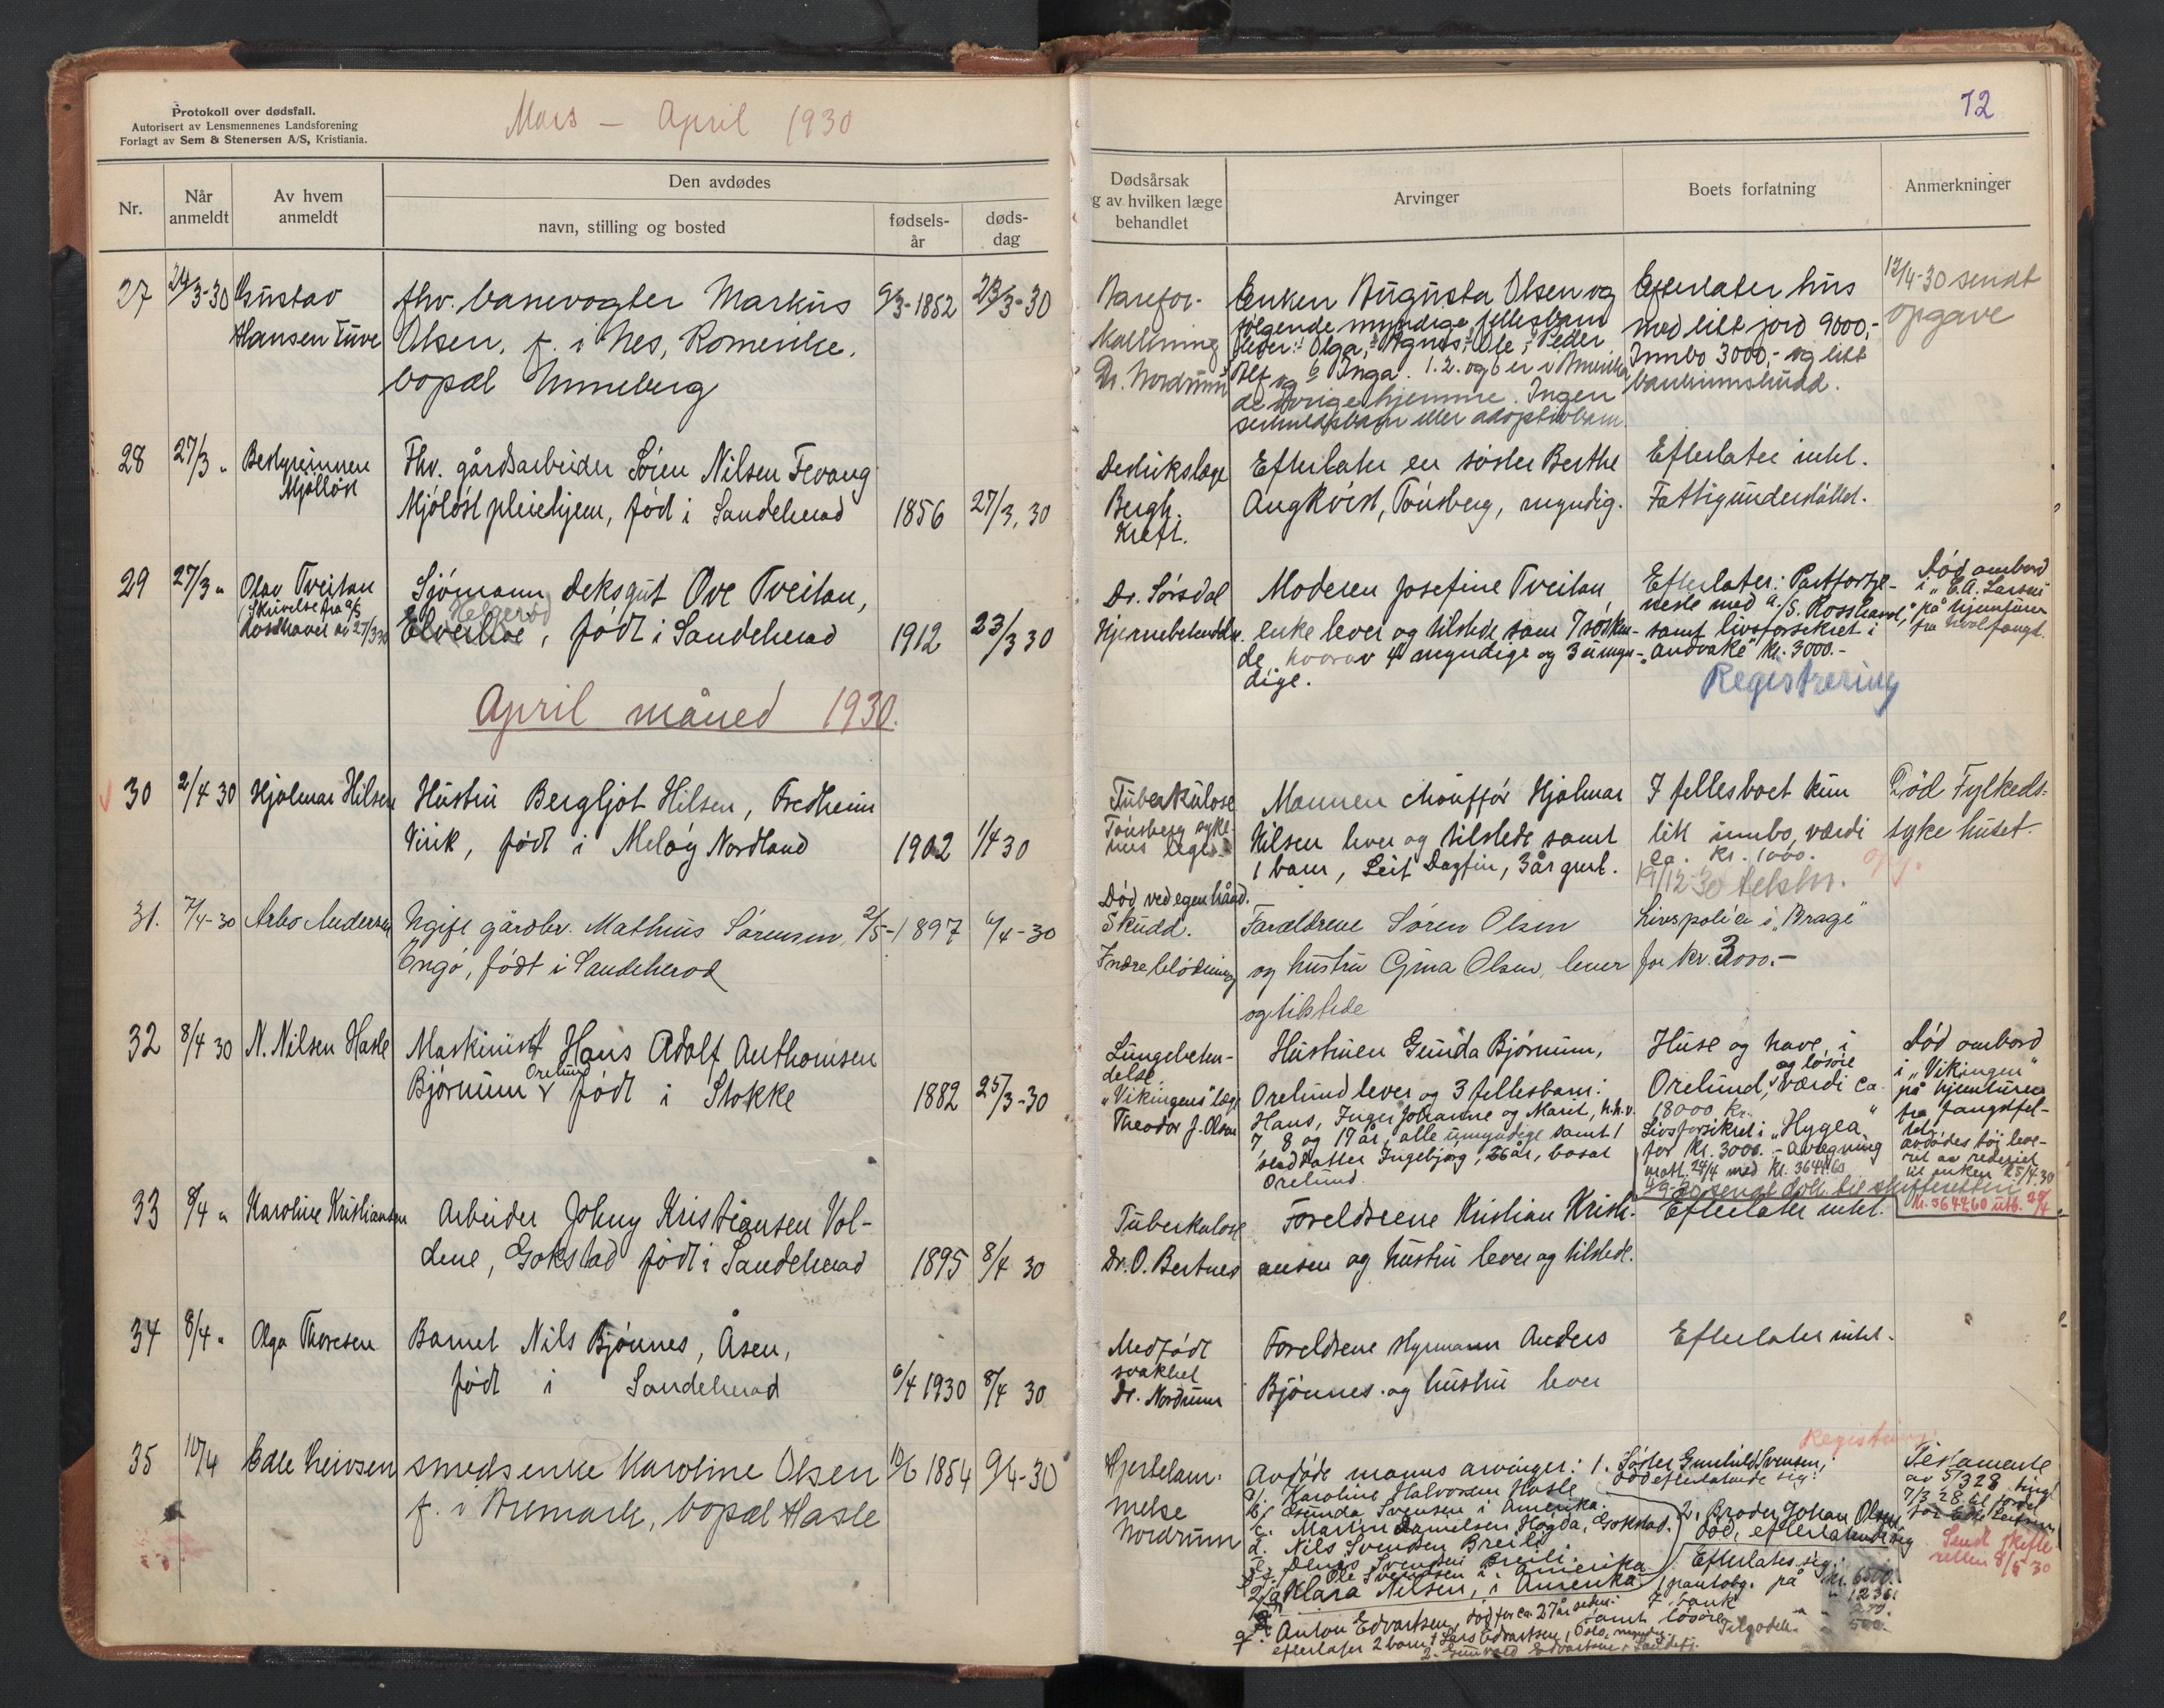 Protokoll over dødsfall.
Autorisert av Lensmennenes Landsforening
Forlagt av Sem & Stenersen A/S, Kristiania.
Mars - April 1930
12
Nr.
Når anmeldt
Av hvem anmeldt
Den avdødes
navn, stilling og bosted
fødsels-år
døds-dag
Dødsårsak
og av hvilken læge
behandlet
Arvinger
Boets forfatning
Anmerkninger
27 24/3-30 Gustav fhv. banevogter Markus 9/3-1852 23/3-30
Hansen Tuve Olsen, f. i Nes, Romerike,
bopæl Unneberg
Åreforkalkning
Dr. Nordrum
Enken Augusta Olsen og
følgende myndige fellesbarn
Olga, Agnes, Ole, Peder
Alf og 6 Inga. 1. 2. og 6 er i Amerika
de øvrige hjemme. Ingen
særkuldsbarn eller adoptivbarn.
Efterlater hus
med litt jord 9000,-
Innbo 3000,- og litt
bankinnskudd.
12/4-30 sendt
opgave
28 27/3 " Bestyrerinnen Fhv. gårdsarbeider Søren Nilsen Fevang
Mjølløst Mjøløst pleiehjem, født i Sandeherad 1856 27/3, 30
Destriktslæge
Bergh.
Kreft.
Efterlater en søster Berthe
Angkvist, Tønsberg, myndig.
Efterlater intet.
Fattigunderstøttet.
29 27/3 " Olav Tveitan Sjømann, deksgut Ove Tveitan,
(Skrivelse fra a/s Helgerød
Rosshavet av 27/3 30 Elverhoe, født i Sandeherad 1912 23/3 30
Dr. Sørsdal
Hjernebetendelse.
Moderen Josefine Tveitan,
enke lever og tilstede som 7 søsken-
de, hvorav 4 myndige og 3 umyn-
dige.
Efterlater: Partfortje-
neste med a/S. Rosshavet,
samt livsforsikret i
"Andvake" kr. 3000.-
Registrering
Død ombord
i "C.A. Larsen"
på hjemturen
fra hvalfangst.
April måned 1930.
30 2/4 30 Hjalmar Hilsen Hustru Bergljot Hilsen, Fredheim
Virik, født i Meløy Nordland 1902 1/4 30
Tuberkulose
Tønsberg syke-
hus læge.
Mannen chauffør Hjalmar
Hilsen lever og tilstede samt
1 barn, Leif Dagfin, 3 år gml.
I fellesboet kun
litt innbo, værdi
ca. kr. 1000.
Død Fylkeds-
sykehuset.
31. 7/4-30 Arbo Andersen Ugift gårdbr. Mathius Sørensen, 2/5-1897 6/4-30
Engø, født i Sandeherad
Død ved egen hånd.
Skudd.
Indre blødning
Forældrene Søren Olsen
og hustru Gina Olsen, lever
og tilstede
Livspolice i "Brage"
for kr. 3000.-
32 8/4 30 N. Nilsen Hasle Maskinist Hans Adolf Anthonisen
Orelund
Bjørnum født i Stokke 1882 25/3-30
Lungebeten-
delse
"Vikingens" læge
Theodor J. Olsen
Hustruen Gunda Bjørnum,
Orelund lever og 3 fellesbarn:
Hans, Inger Johanne og Marit, h.h.v.
7 8 og 17 år, alle umyndige samt 1
Datter Ingebjørg, 26 år, bosat
Orelund.
Huse og have i
og løsøre
Orelund, værdi ca.
18000 kr.
Livsforsikret i "Hygea"
for kr. 3000.- avregning
24/4 med kr. 3644.60
Død ombord
i "Vikingen"
på hjemturen
fra fangstfel-
tet.
avdødes tøj leve-
ret av rederiet
til enken 25/4.30
kr. 3644,60 utb. 29/4
33 8/4 " Karoline Kristiansen Arbeider Johny Kristiansen Vol-
dene, Gokstad født i Sandeherad 1895 8/4 30
Tuberkulose
Dr. O. Bertnes
Foreldrene Kristian Kristi-
ansen og hustru lever og tilstede.
Efterlater intet.
34 8/4 " Olga Thoresen Barnet Nils Bjønnes, Åsen,
født i Sandeherad 6/4 1930 8/4 30
Medfødt
svakhet
Dr. Nordrum
Foreldrene styrmann Anders
Bjønnes og hustru lever
Efterlater intet.
35 10/4 Edle Leivsen smedsenke Karoline Olsen 10/6 1854 9/4-30
f. i Aremark, bopæl Hasle
Hjertelam-
melse
Nordrum
Avdøde manns arvinger: 1. Søster Gunhild Svensen,
død efterlatende sig:
a/ Karoline Halvorsen Hasle
b/ Gunda Svensen i Amerika.
c. Martin Danielsen Høgda, Gokstad.
d. Nils Svendsen Breili
e. Svendsen Breili.
f. Ole Svendsen i Amerika
g/ Klara Nilsen, i Amerika
Anton Edvartsen, død for ca. 27 år siden.
efterlater 2 barn 1 Lars Edvartsen, Oslo, myndig.
2. Edvartsen i Sandefj.
2. Broder Johan Olsen
død, efterlatende sig
Registrering
Efterlates sig:
1 pantobg. på kr. 6500.
I bank " 1236.
samt løsøre
500.
Testamente
av 5/3 28, tingl
7/3 28 til fordel
for Edle Leivsen
Sendt skifte-
retten 8/5 30